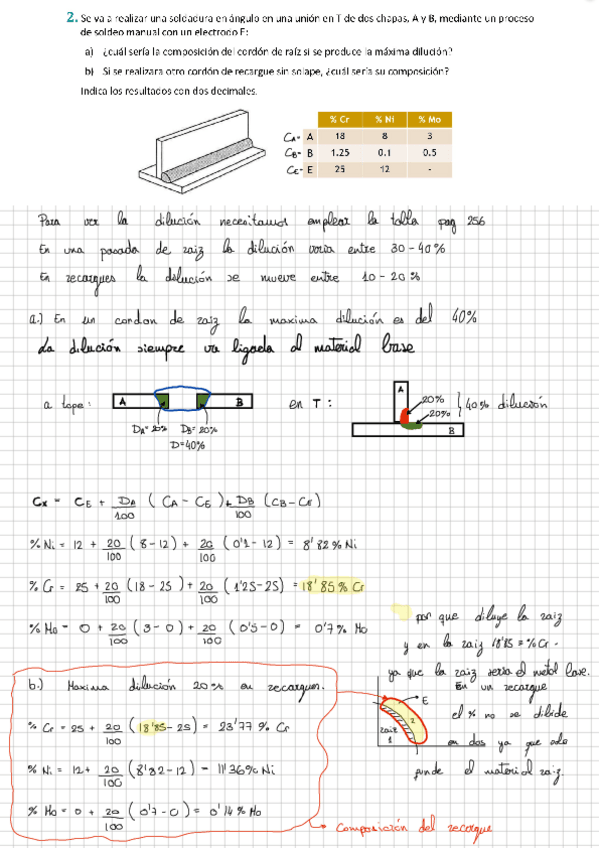 2. Se va a realizar una soldadura en ángulo en una unión en T de dos chapas, A y B, mediante un proceso
de soldeo manual con un electrodo E:
a) ¿cuál sería la composición del cordón de raíz si se produce la máxima dilución?
b) Si se realizara otro cordón de recargue sin solape, ¿cuál sería su composición?
Indica los resultados con dos decimales.
% Cr % Ni % Mo
CA= A 18 8 3
CB= B 1.25 0.1 0.5
CE= E 25 12 -
Para ver la dilución necesitamos emplear la tabla pag 256
En una pasada de raiz la dilución varia entre 30-40%
En recargues la dilución se mueve entre 10-20%
a.) En un cordon de raiz la maxima dilución es del 40%
La dilución siempre va ligada al material base
a tope: A B en T: A 20% 20% } 40% dilución B
DA= 20% DB= 20%
D=40%
Cx = CE + DA/100 (CA - CE) + DB/100 (CB-CE)
% Ni = 12 + 20/100 (8-12) + 20/100 (0'1-12) = 8'82% Ni
% Cr = 25 + 20/100 (18-25) + 20/100 (1'25-25) = 18'85% Cr
% Mo = 0 + 20/100 (3-0) + 20/100 (0'5-0) = 0'7% Mo
por que diluye la raiz
y en la raiz 18'85 = %Cr.
ya que la raiz seria el metal base.
En un recargue
el % no se divide
en dos ya que solo
funde el material raiz.
b.) Maxima dilución 20% en recargues.
% Cr = 25 + 20/100 (18'85-25) = 23'77% Cr
% Ni = 12+ 20/100 (8'82-12) = 11'36% Ni
% Mo = 0 + 20/100 (0'7-0) = 0'14% Mo
E
2
raiz
1
Composición del recargue